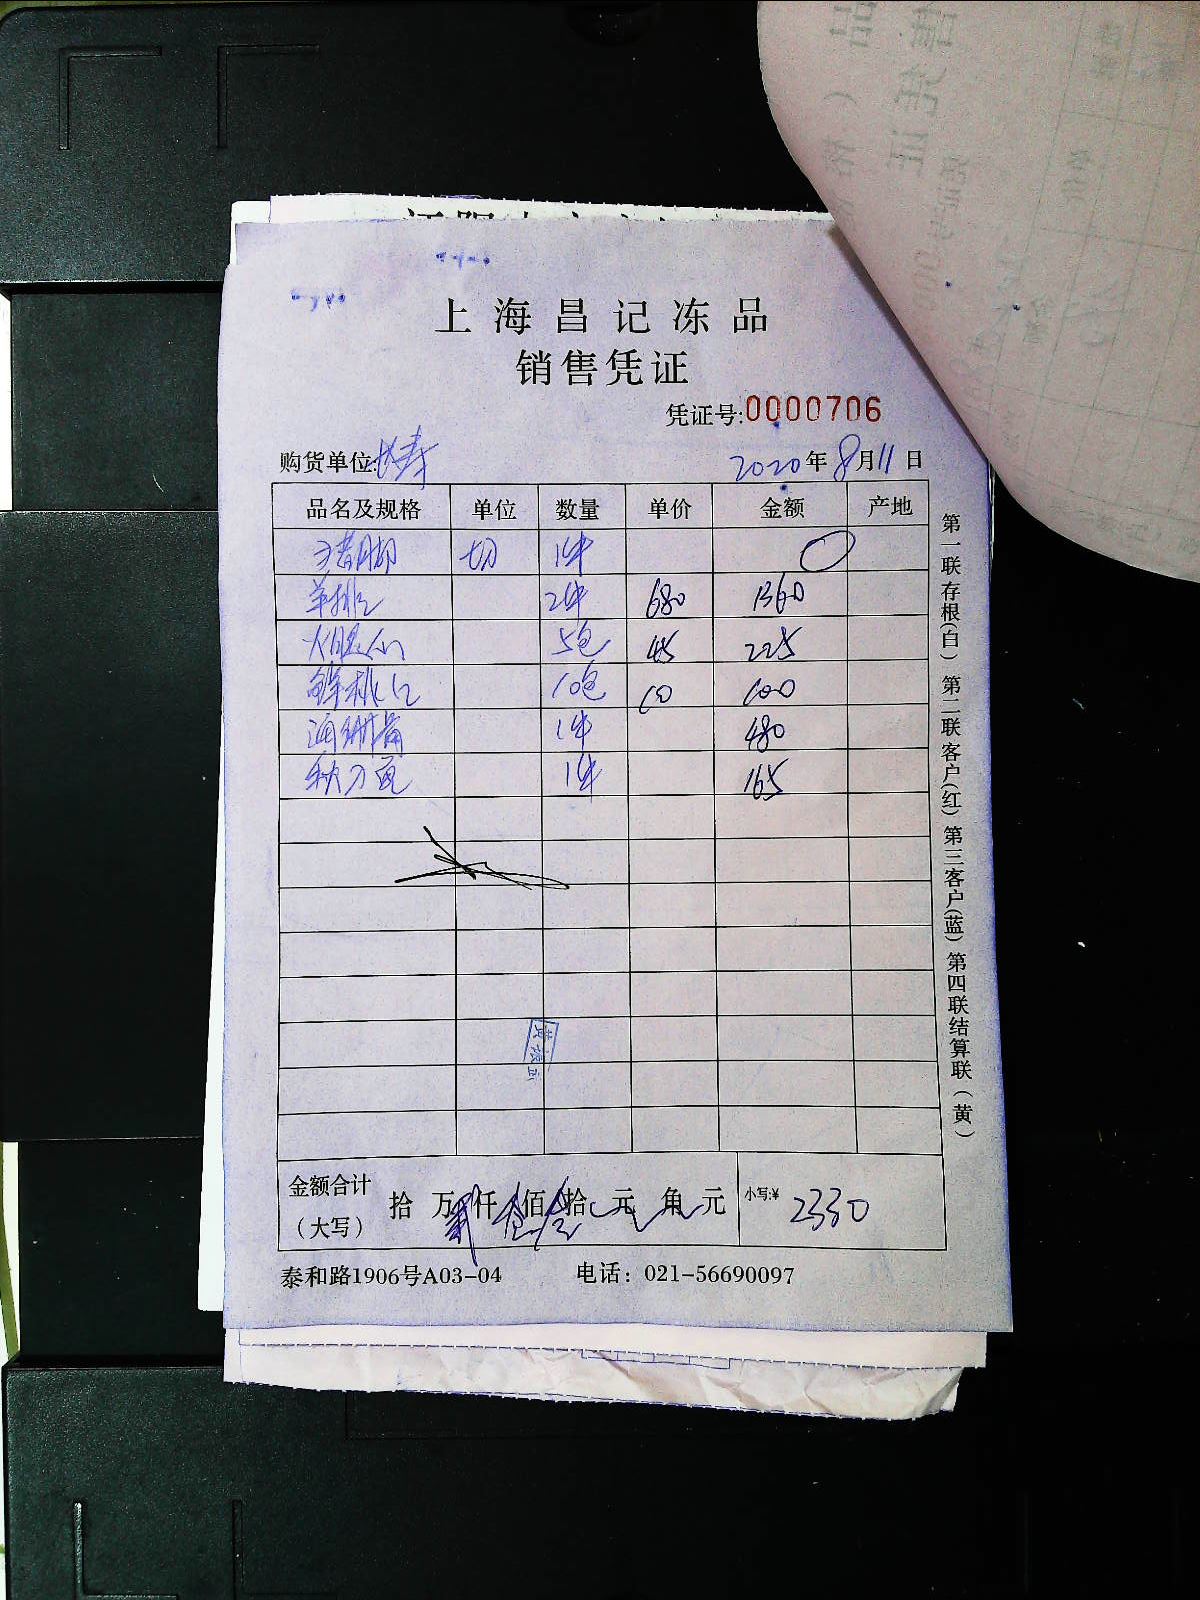 上海昌记冻品
销售凭证
凭证号:0000706
购货单位:长寿 2020年8月11日
品名及规格 单位 数量 单价 金额 产地
猪脚 切 1件
羊排 2件 680 1360
5包 45 225
10包 10 100
1件 480
秋刀鱼 1件 165
金额合计
(大写)
拾 万 仟 佰 拾 元 角 元
小写:¥ 2330
泰和路1906号A03-04 电话：021-56690097
第一联存根(白) 第二联客户(红) 第三客户(蓝) 第四联结算联(黄)